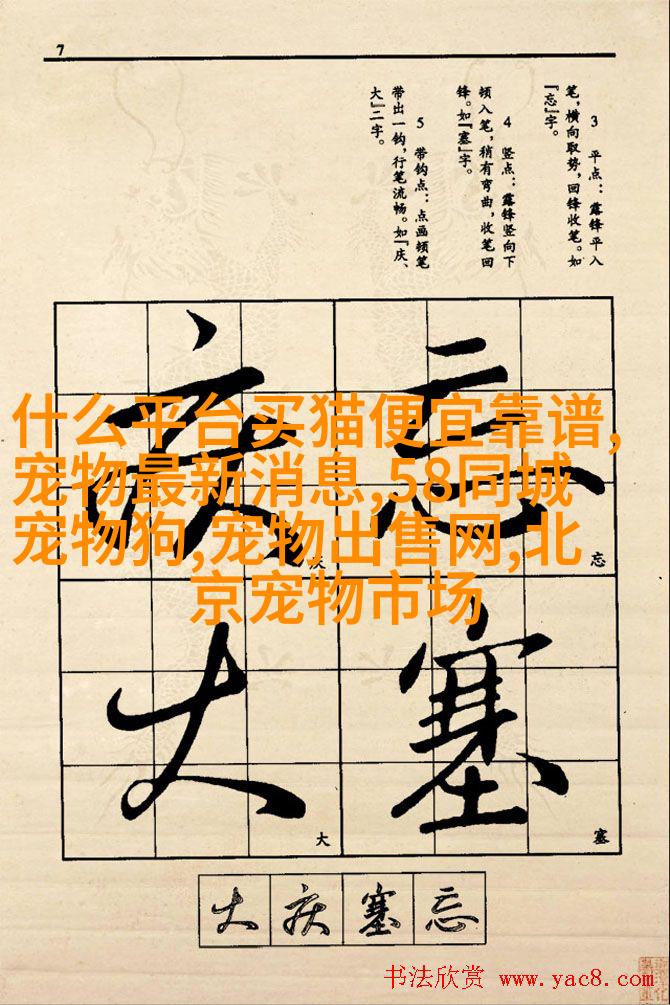 7
3 平点：露锋平入
笔，横向取势，回锋收笔。如
『忘』字。
4 竖点：露锋竖向下
顿入笔，稍有弯曲，收笔回
锋。如『塞』字。
5 带钩点：点画顿笔
带出一钩，行笔流畅。如『庆、
大』二字。
什么平台买猫便宜靠谱,
宠物最新消息,58同城
宠物狗,宠物出售网,北
京宠物市场
庆 忘
庆 忘
大 塞
大 塞
大 庆 塞 忘
书法欣赏 www.yac8.com